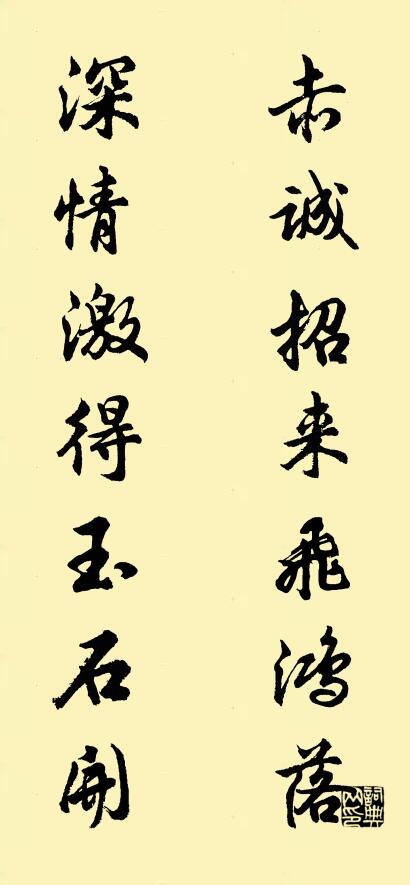 赤诚招来飞鸿落
深情激得玉石開
詞典